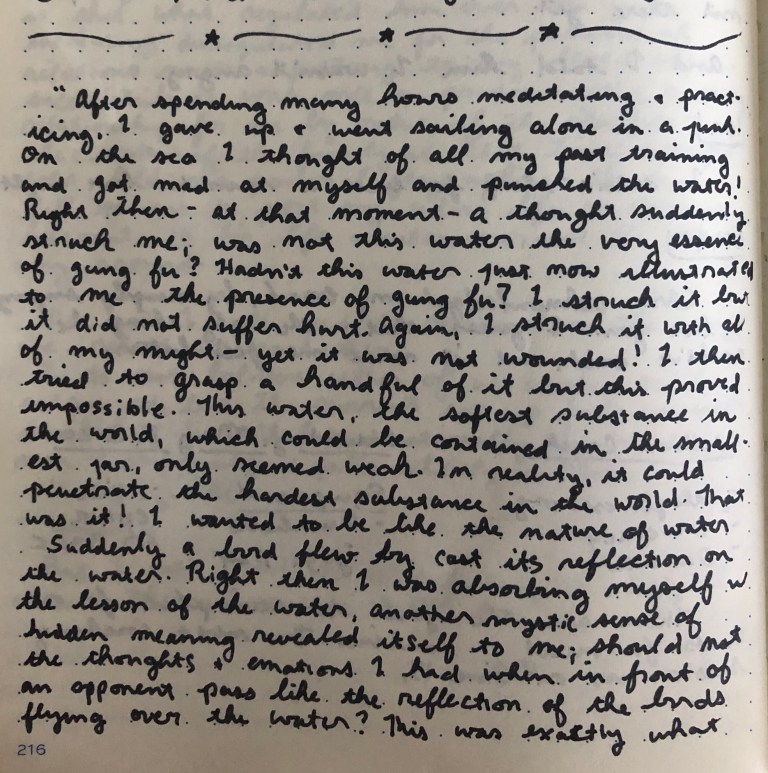 "After spending many hours meditating & pract-
icing, I gave up & went sailing alone in a junk.
On the sea I thought of all my past training
and got mad at myself and punched the water!
Right then - at that moment - a thought suddenly
struck me; was not this water the very essence
of gung fu? Hadn't this water just now illustrated
to me the presence of gung fu? I struck it but
it did not suffer hurt. Again, I struck it with all
of my might - yet it was not wounded! I then
tried to grasp a handful of it but this proved
impossible. This water, the softest substance in
the world, which could be contained in the small-
est jar, only seemed weak. In reality, it could
penetrate the hardest substance in the world. That
was it! I wanted to be like the nature of water
Suddenly a bird flew by cast its reflection on
the water. Right then I was absorbing myself w
the lesson of the water, another mystic sense of
hidden meaning revealed itself to me; should not
the thoughts & emotions I had when in front of
an opponent pass like the reflection of the birds
flying over the water? This was exactly what
216